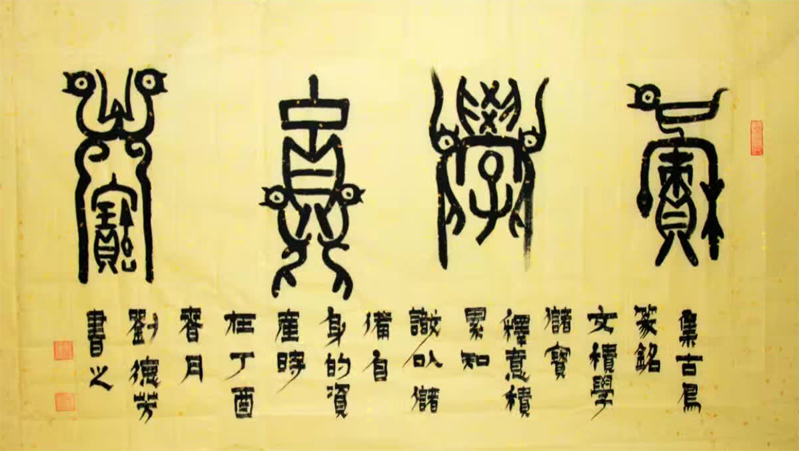 積
學
貯
寶
集古鳥
篆銘
文積學
儲寶
釋意積
累知
識以儲
備自
身的資
產時
在丁酉
春月
劉德芳
書之